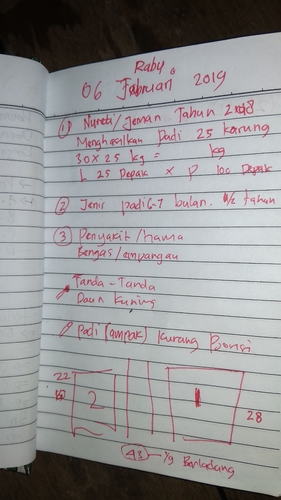 Rabu
06 Februari 2019
① Nureti/Jeman Tahun 2018
Menghasilkan Padi 25 karung
30 x 25 kg = kg
L 25 Depak x P 100 Depak
② Jenis padi 6-7 bulan. 1/2 tahun
③ Penyakit/hama
Bengas/ampangau
Tanda-Tanda
Daun Kuning
Padi (ampak) Kurang
22
2
1
28
43 - yg Berladang